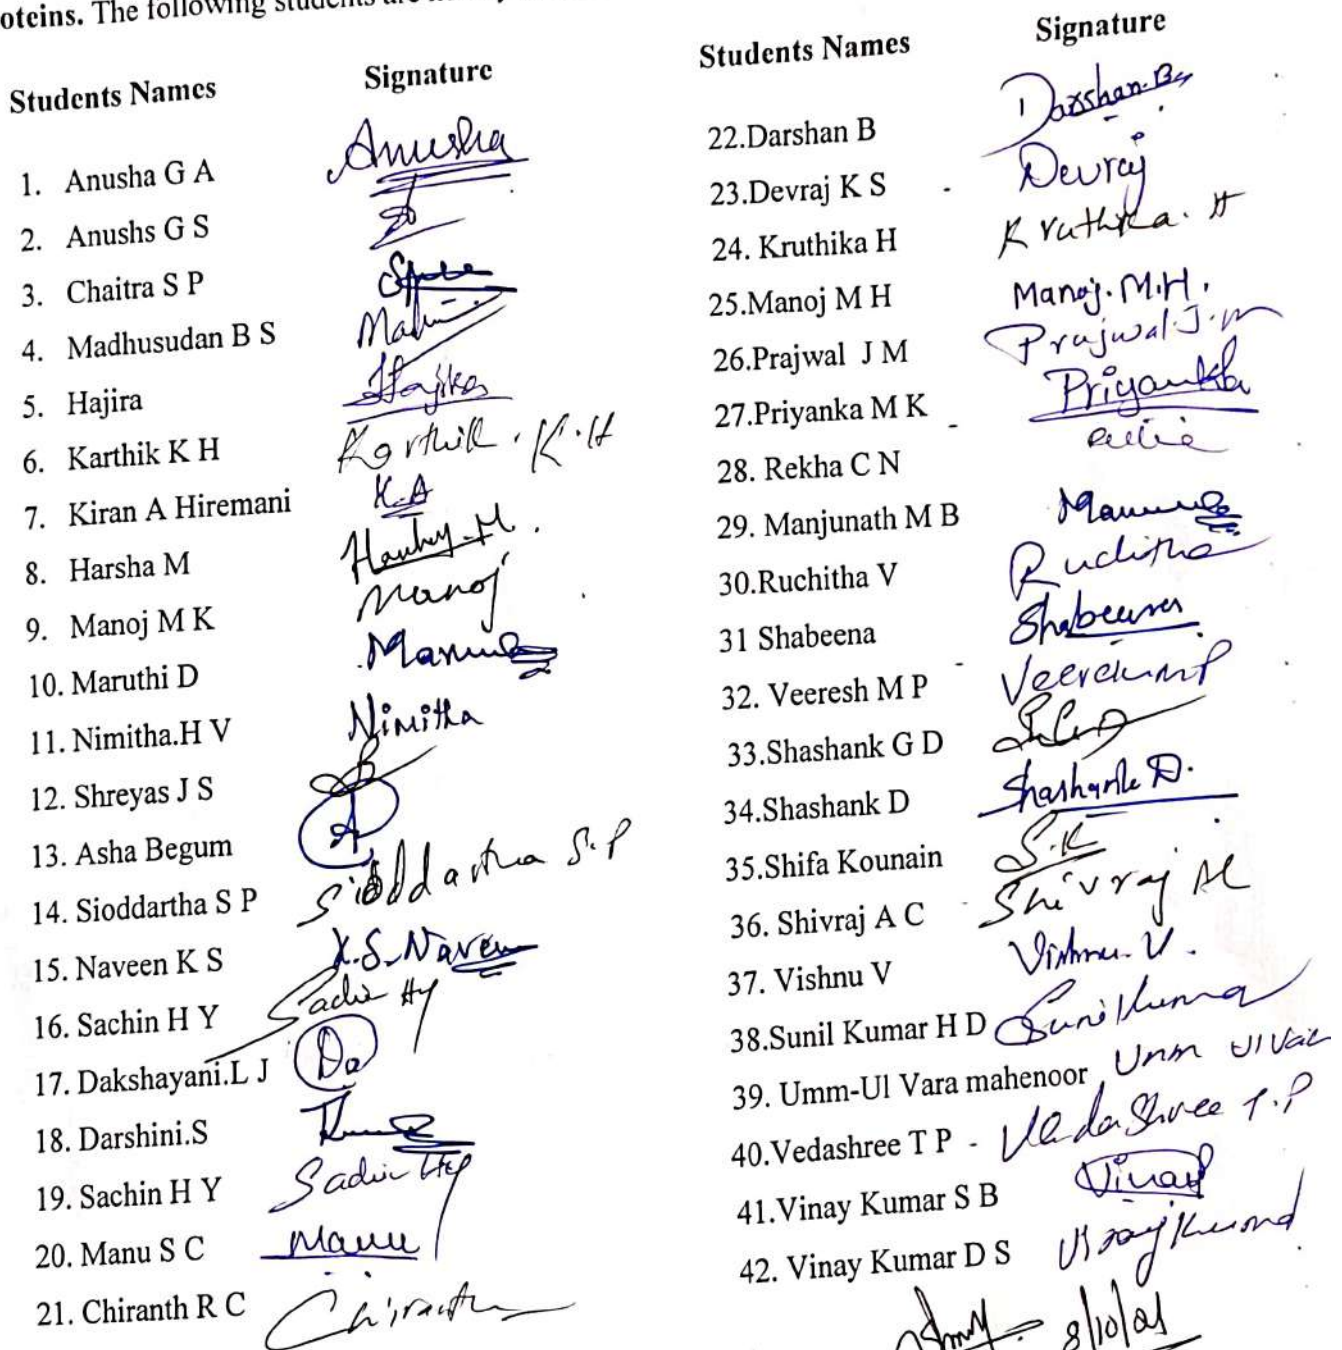 oteins. The following students are
Students Names Signature
1. Anusha G A Anusha
2. Anushs G S
3. Chaitra S P
4. Madhusudan B S
5. Hajira Hajira
6. Karthik K H Karthik . K.H
7. Kiran A Hiremani K.A
8. Harsha M
9. Manoj M K Manoj
10. Maruthi D
11. Nimitha.H V Nimitha
12. Shreyas J S
13. Asha Begum A
14. Sioddartha S P Sioddartha S.P
15. Naveen K S K.S.Naveen
16. Sachin H Y Sachin HY
17. Dakshayani.L J Da
18. Darshini.S
19. Sachin H Y Sachin HY
20. Manu S C Manu
21. Chiranth R C Chiranth
Students Names Signature
22.Darshan B Darshan.B
23.Devraj K S - Devraj
24. Kruthika H Kruthika. H
25.Manoj M H Manoj.M.H.
26.Prajwal J M Prajwal.J.m
27.Priyanka M K - Priyanka
28. Rekha C N
29. Manjunath M B
30.Ruchitha V Ruchitha
31 Shabeena Shabeena
32. Veeresh M P - Veeresh M P
33.Shashank G D
34.Shashank D Shashank D.
35.Shifa Kounain S.K
36. Shivraj A C - Shivraj AC
37. Vishnu V Vishnu. V.
38.Sunil Kumar H D Sunil Kumar
39. Umm-Ul Vara mahenoor Umm Ul Vara
40.Vedashree T P - Vedashree T.P
41.Vinay Kumar S B Vinay
42. Vinay Kumar D S Vinay Kumar
8/10/21